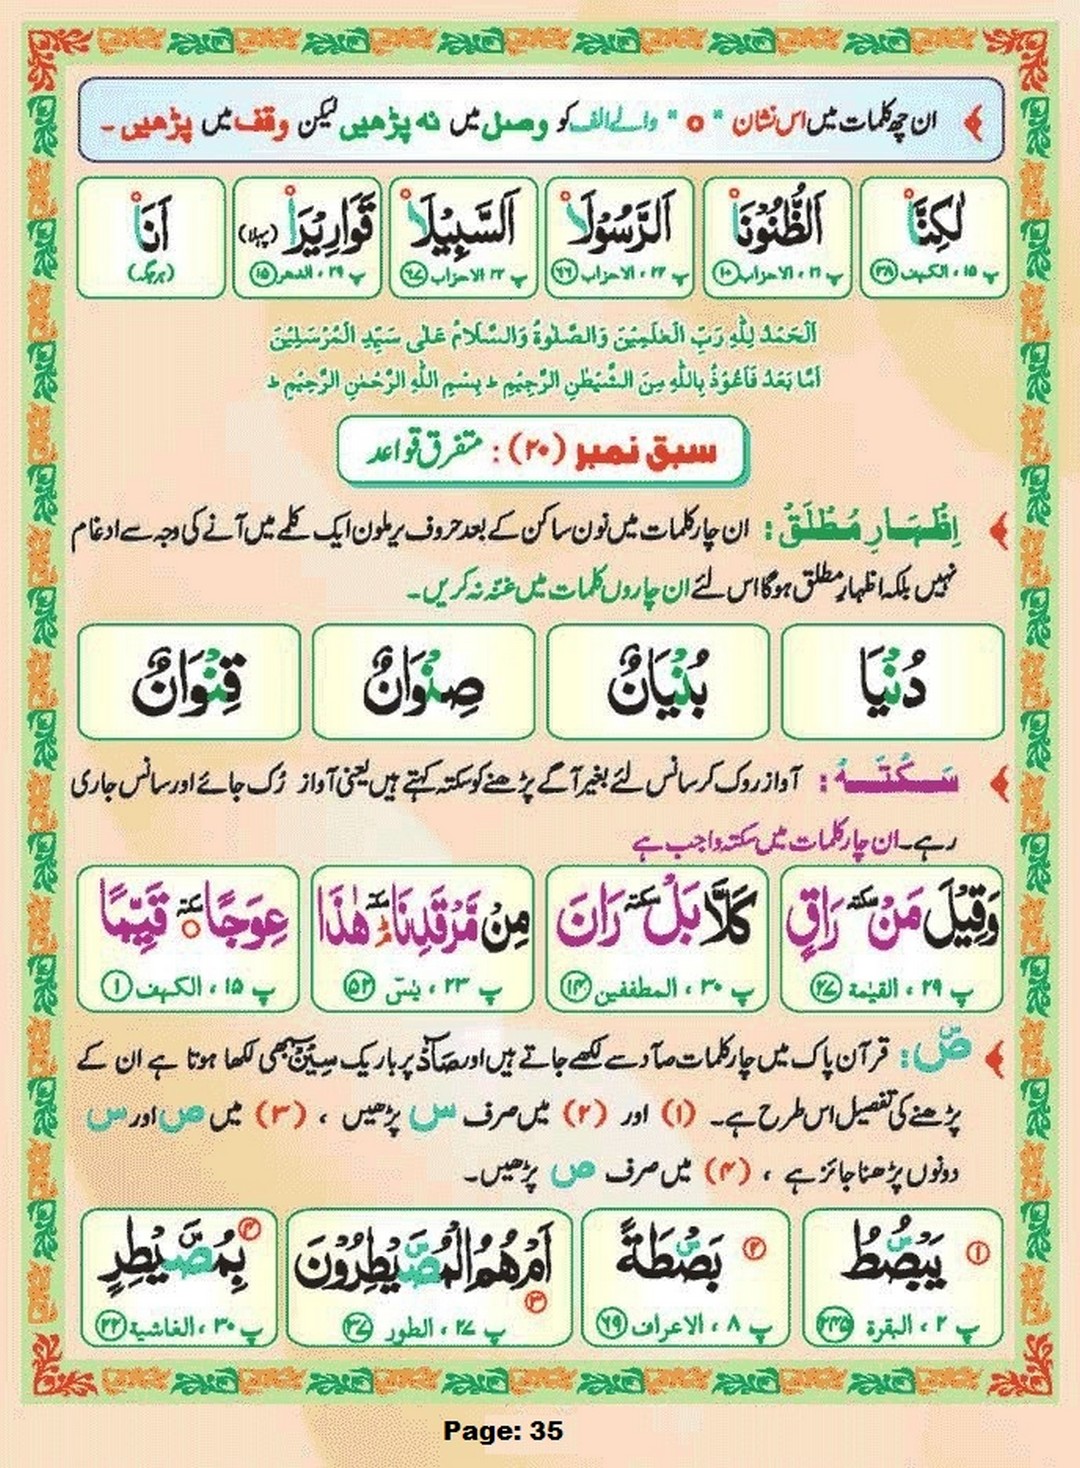 ان چھ کلمات میں اس نشان "o" والے الف کو وصل میں نہ پڑھیں لیکن وقف میں پڑھیں۔
لٰكِنَّا۠ اَلظُّنُوْنَا۠ اَلرَّسُوْلَا۠ اَلسَّبِيْلَا۠ قَوَارِيْرَا۠ (پہلا) اَنَا۠
پ ۱۵، الکہف ۳۸ پ ۲۱، الاحزاب ۱۰ پ ۲۲، الاحزاب ۶۶ پ ۲۲ الاحزاب ۶۷ پ ۲۹، الدھر ۱۵ (ہر جگہ)
اَلْحَمْدُ لِلّٰهِ رَبِّ الْعٰلَمِيْنَ وَالصَّلٰوةُ وَالسَّلَامُ عَلٰى سَيِّدِ الْمُرْسَلِيْنَ
اَمَّا بَعْدُ فَاَعُوْذُ بِاللّٰهِ مِنَ الشَّيْطٰنِ الرَّجِيْمِ ط بِسْمِ اللّٰهِ الرَّحْمٰنِ الرَّحِيْمِ ط
سبق نمبر (۲۰) : متفرق قواعد
اِظْہَارِ مُطْلَقْ : ان چار کلمات میں نون ساکن کے بعد حروف یرملون ایک کلمے میں آنے کی وجہ سے ادغام
نہیں بلکہ اظہارِ مطلق ہوگا اس لئے ان چاروں کلمات میں غنّہ نہ کریں۔
دُنْيَا بُنْيَانٌ صِنْوَانٌ قِنْوَانٌ
سَکْتَہْ : آواز روک کر سانس لئے بغیر آگے پڑھنے کو سکتہ کہتے ہیں یعنی آواز رُک جائے اور سانس جاری
رہے۔ ان چار کلمات میں سکتہ واجب ہے
وَقِيْلَ مَنْ سكتة رَاقٍ كَلَّا بَلْ سكتة رَانَ مِنْ مَّرْقَدِنَا سكتة هٰذَا عِوَجًا سكتة قَيِّمًا
پ ۲۹، القیٰمة ۲۷ پ ۳۰، المطففین ۱۴ پ ۲۳، یٰسٓ ۵۲ پ ۱۵، الکہف ۱
صٓ : قرآن پاک میں چار کلمات صآد سے لکھے جاتے ہیں اور صآد پر باریک سِیْن بھی لکھا ہوتا ہے ان کے
پڑھنے کی تفصیل اس طرح ہے۔ (۱) اور (۲) میں صرف س پڑھیں ، (۳) میں ص اور س
دونوں پڑھنا جائز ہے ، (۴) میں صرف ص پڑھیں۔
۱ يَبْصُۜطُ ۲ بَصْۜطَةً ۳ اَمْ هُمُ الْمُصَۜيْطِرُوْنَ ۴ بِمُصَۜيْطِرٍ
پ ۲، البقرة ۲۴۵ پ ۸، الاعراف ۶۹ پ ۲۷، الطور ۳۷ پ ۳۰، الغاشیة ۲۲
Page: 35